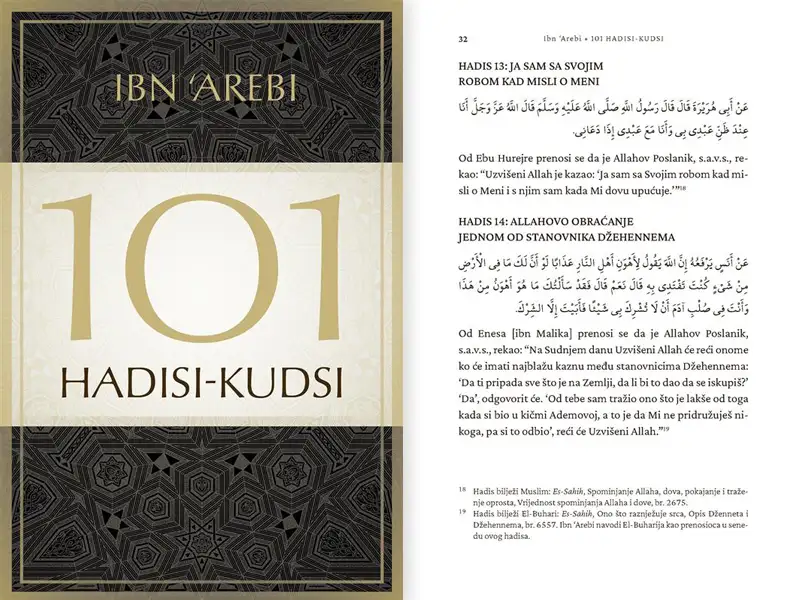 IBN ‘AREBI
101
HADISI-KUDSI
32
Ibn ‘Arebi • 101 HADISI-KUDSI
HADIS 13: JA SAM SA SVOJIM
ROBOM KAD MISLI O MENI
عَنْ أَبِى هُرَيْرَةَ قَالَ قَالَ رَسُولُ اللهِ صَلَّى اللهُ عَلَيْهِ وَسَلَّمَ قَالَ اللهُ عَزَّ وَجَلَّ أَنَا
عِنْدَ ظَنِّ عَبْدِى بِى وَأَنَا مَعَ عَبْدِى إِذَا دَعَانِى.
Od Ebu Hurejre prenosi se da je Allahov Poslanik, s.a.v.s., re-
kao: “Uzvišeni Allah je kazao: ‘Ja sam sa Svojim robom kad mi-
sli o Meni i s njim sam kada Mi dovu upućuje.’”18
HADIS 14: ALLAHOVO OBRAĆANJE
JEDNOM OD STANOVNIKA DŽEHENNEMA
عَنْ أَنَسٍ يَرْفَعُهُ إِنَّ اللهَ يَقُولُ لِأَهْوَنِ أَهْلِ النَّارِ عَذَابًا لَوْ أَنَّ لَكَ مَا فِى الْأَرْضِ
مِنْ شَىْءٍ كُنْتَ تَفْتَدِى بِهِ قَالَ نَعَمْ قَالَ فَقَدْ سَأَلْتُكَ مَا هُوَ أَهْوَنُ مِنْ هَذَا
وَأَنْتَ فِى صُلْبِ آدَمَ أَنْ لَا تُشْرِكَ بِى شَيْئًا فَأَبَيْتَ إِلَّا الشِّرْكَ.
Od Enesa [ibn Malika] prenosi se da je Allahov Poslanik,
s.a.v.s., rekao: “Na Sudnjem danu Uzvišeni Allah će reći onome
ko će imati najblažu kaznu među stanovnicima Džehennema:
‘Da ti pripada sve što je na Zemlji, da li bi to dao da se iskupiš?’
‘Da’, odgovorit će. ‘Od tebe sam tražio ono što je lakše od toga
kada si bio u kičmi Ademovoj, a to je da Mi ne pridružuješ ni-
koga, pa si to odbio’, reći će Uzvišeni Allah.”19
18 Hadis bilježi Muslim: Es-Sahih, Spominjanje Allaha, dova, pokajanje i traže-
nje oprosta, Vrijednost spominjanja Allaha i dove, br. 2675.
19 Hadis bilježi El-Buhari: Es-Sahih, Ono što raznježuje srca, Opis Dženneta i
Džehennema, br. 6557. Ibn ‘Arebi navodi El-Buharija kao prenosioca u sene-
du ovog hadisa.